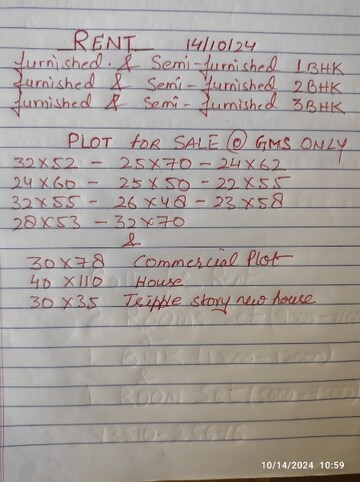 RENT 14/10/24
furnished & Semi-furnished 1BHK
furnished & Semi-furnished 2BHK
furnished & Semi-furnished 3BHK
PLOT for SALE @ GMS ONLY
32x52 - 25x70 - 24x62
24x60 - 25x50 - 22x55
32x55 - 26x48 - 23x58
28x53 - 32x70
&
30x78 Commercial Plot
40x110 House
30x35 Tripple story new house
10/14/2024 10:59